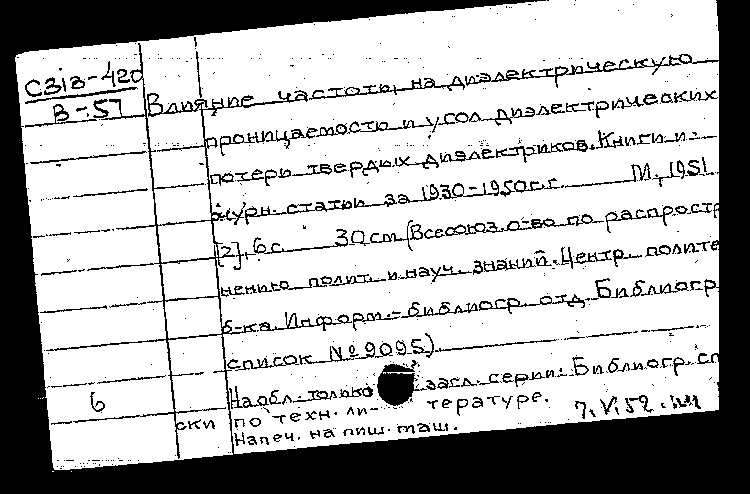 С313-420
В-57
Влияние частоты на диэлектрическую
проницаемость и угол диэлектрических
потерь твердых диэлектриков. Книги и
журн. статьи за 1930-1950г.г. М., 1951
[2], 6 с. 30 см (Всесоюз. о-во по распростр
нению полит. и науч. знаний. Центр. полите
б-ка. Информ.-библиогр. отд. Библиогр
список №9095).
На обл. только засл. серии: Библиогр. сп
6 ски по техн. ли- тературе.
Напеч. на пиш. маш. 7.VI.52.